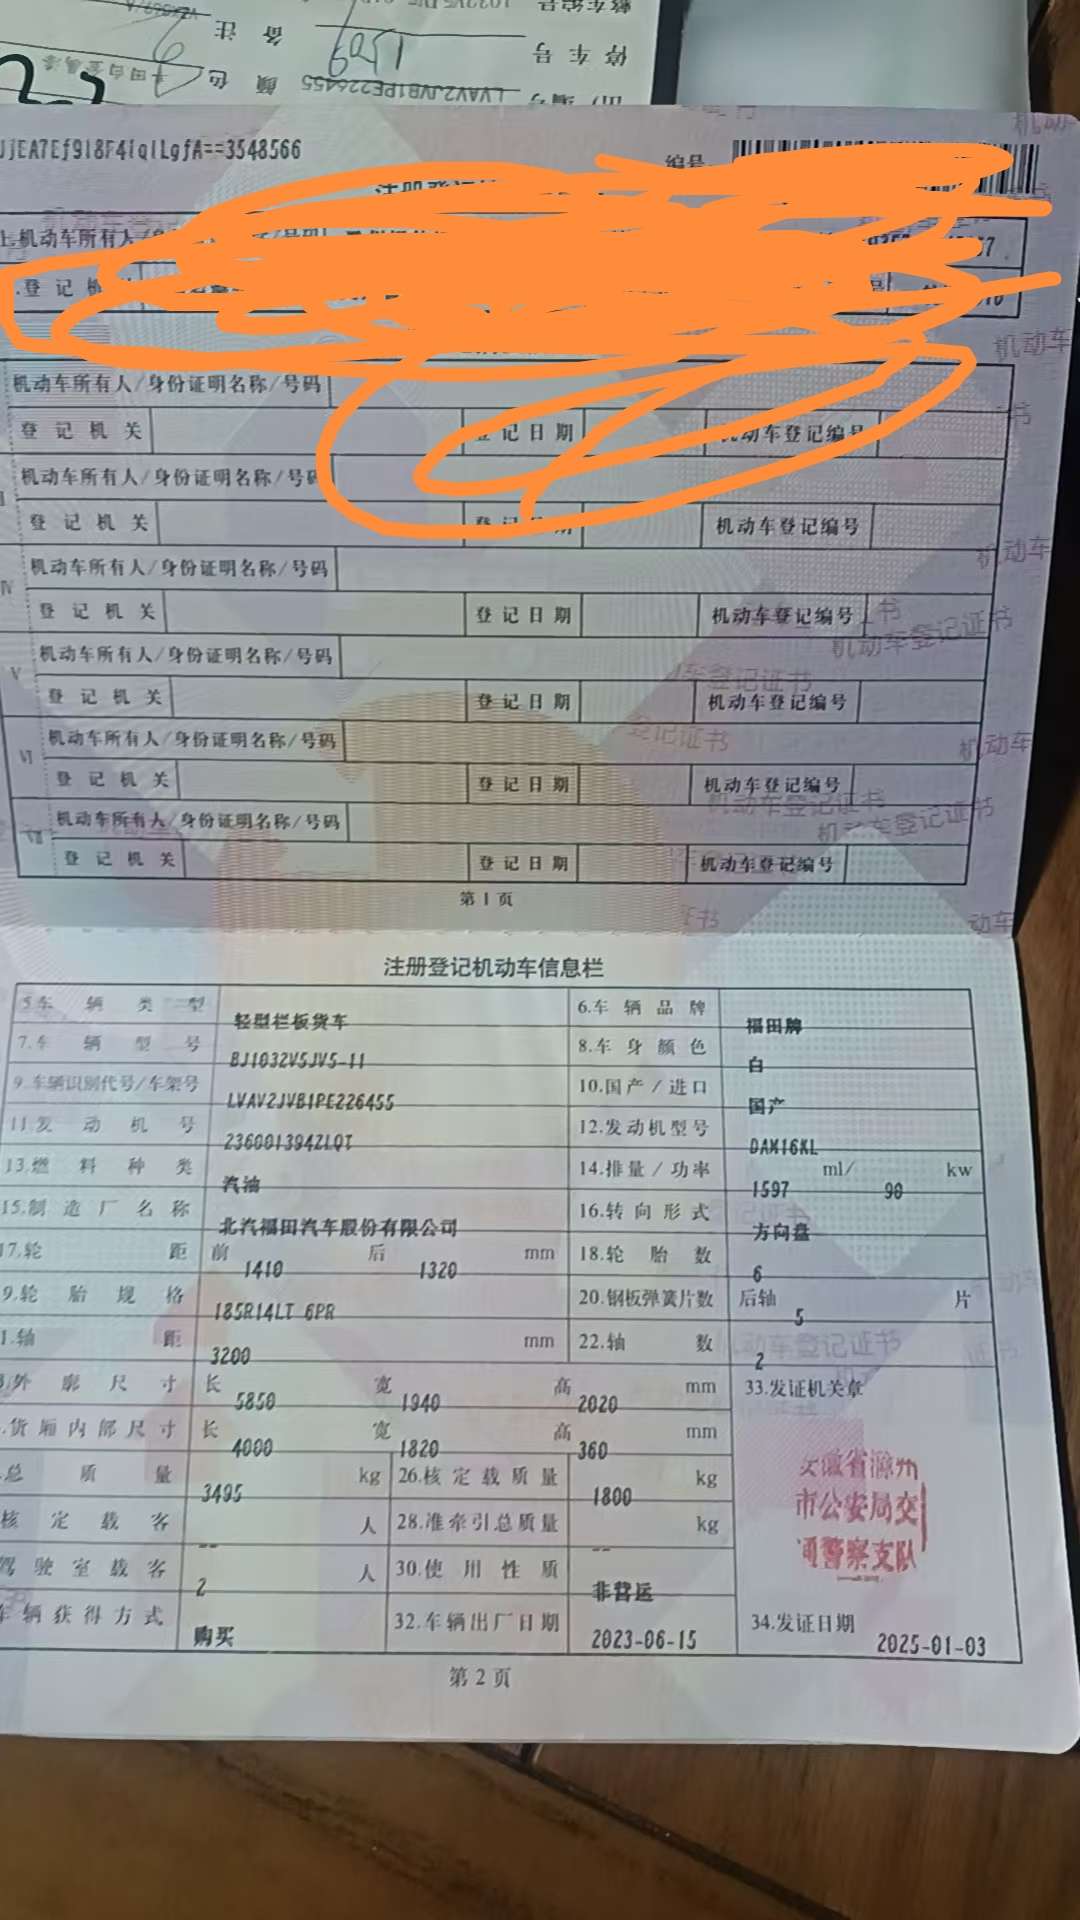 整车编号
停车号 1509 备注
LVAV2JVB1PE226455 颜色
JjEA7Ef9l8F4iqlLgfA==3548566
编号
注册登记
机动车所有人/身
号码
登记机
机动车所有人/身份证明名称/号码
登记机关 登记日期 机动车登记编号
机动车所有人/身份证明名称/号码
登记机关 机动车登记编号
IV 机动车所有人/身份证明名称/号码
登记机关 登记日期 机动车登记编号
V 机动车所有人/身份证明名称/号码
登记机关 登记日期 机动车登记编号
VI 机动车所有人/身份证明名称/号码
登记机关 登记日期 机动车登记编号
VII 机动车所有人/身份证明名称/号码
登记机关 登记日期 机动车登记编号
第1页
注册登记机动车信息栏
5.车辆类型 轻型栏板货车 6.车辆品牌 福田牌
7.车辆型号 BJ1032V5JV5-11 8.车身颜色 白
9.车辆识别代号/车架号 LVAV2JVB1PE226455 10.国产/进口 国产
11.发动机号 236001394ZLQT 12.发动机型号 DAM16KL
13.燃料种类 汽油 14.排量/功率 1597 ml/ 90 kw
15.制造厂名称 北汽福田汽车股份有限公司 16.转向形式 方向盘
17.轮距 前 1410 后 1320 mm 18.轮胎数 6
9.轮胎规格 185R14LT 6PR 20.钢板弹簧片数 后轴 5 片
1.轴距 3200 mm 22.轴数 2
外廓尺寸 长 5850 宽 1940 高 2020 mm 33.发证机关章
货厢内部尺寸 长 4000 宽 1820 高 360 mm
总质量 3495 kg 26.核定载质量 1800 kg
安徽省滁州
市公安局交
通警察支队
核定载客 -- 人 28.准牵引总质量 -- kg
驾驶室载客 2 人 30.使用性质 非营运
车辆获得方式 购买 32.车辆出厂日期 2023-06-15 34.发证日期 2025-01-03
第2页